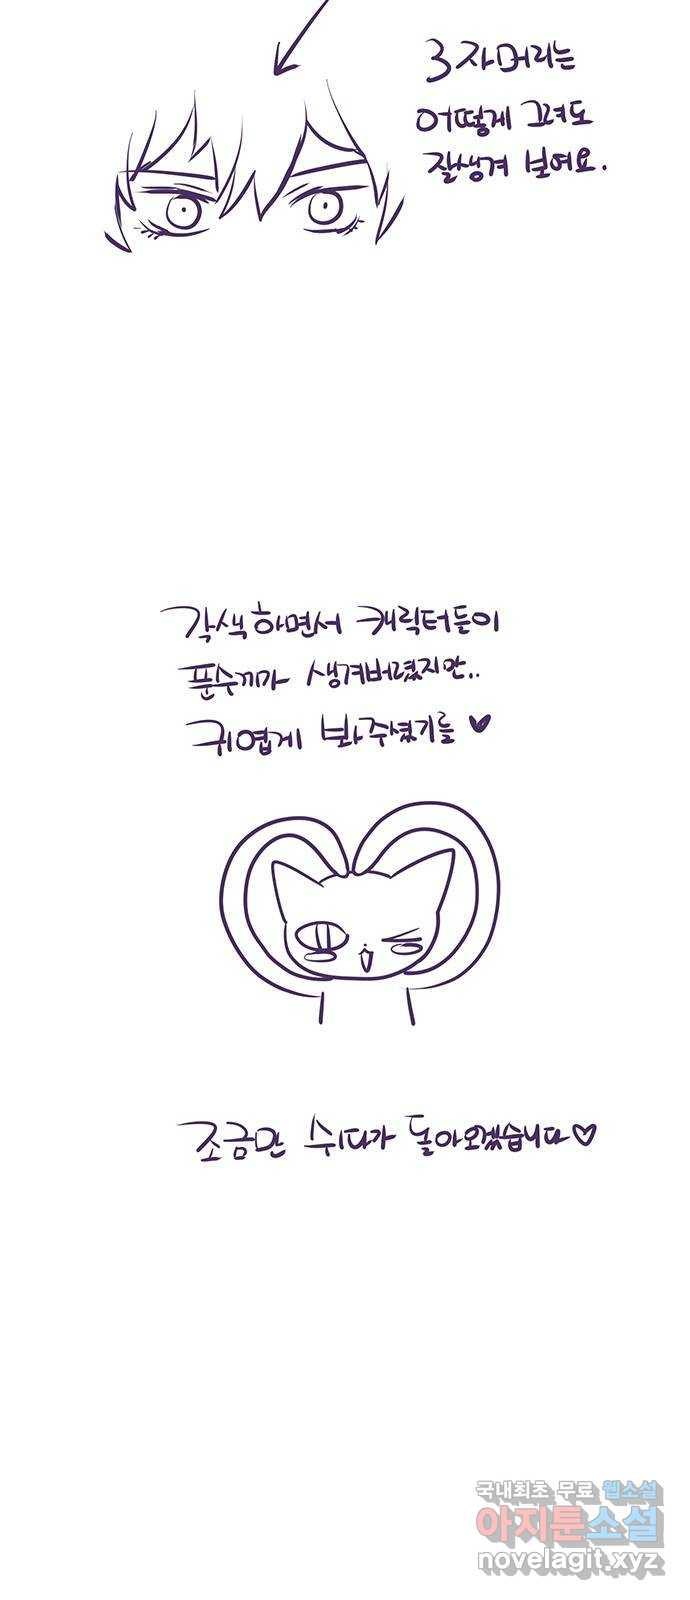 3자머리는
어떻게 그려도
잘생겨 보여요.
각색하면서 캐릭터들이
푼수끼가 생겨버렸지만..
귀엽게 봐주셨기를 ♥
조금만 쉬다가 돌아오겠습니다♡
국내최초 무료 웹소설
아지툰소설
novelagit.xyz